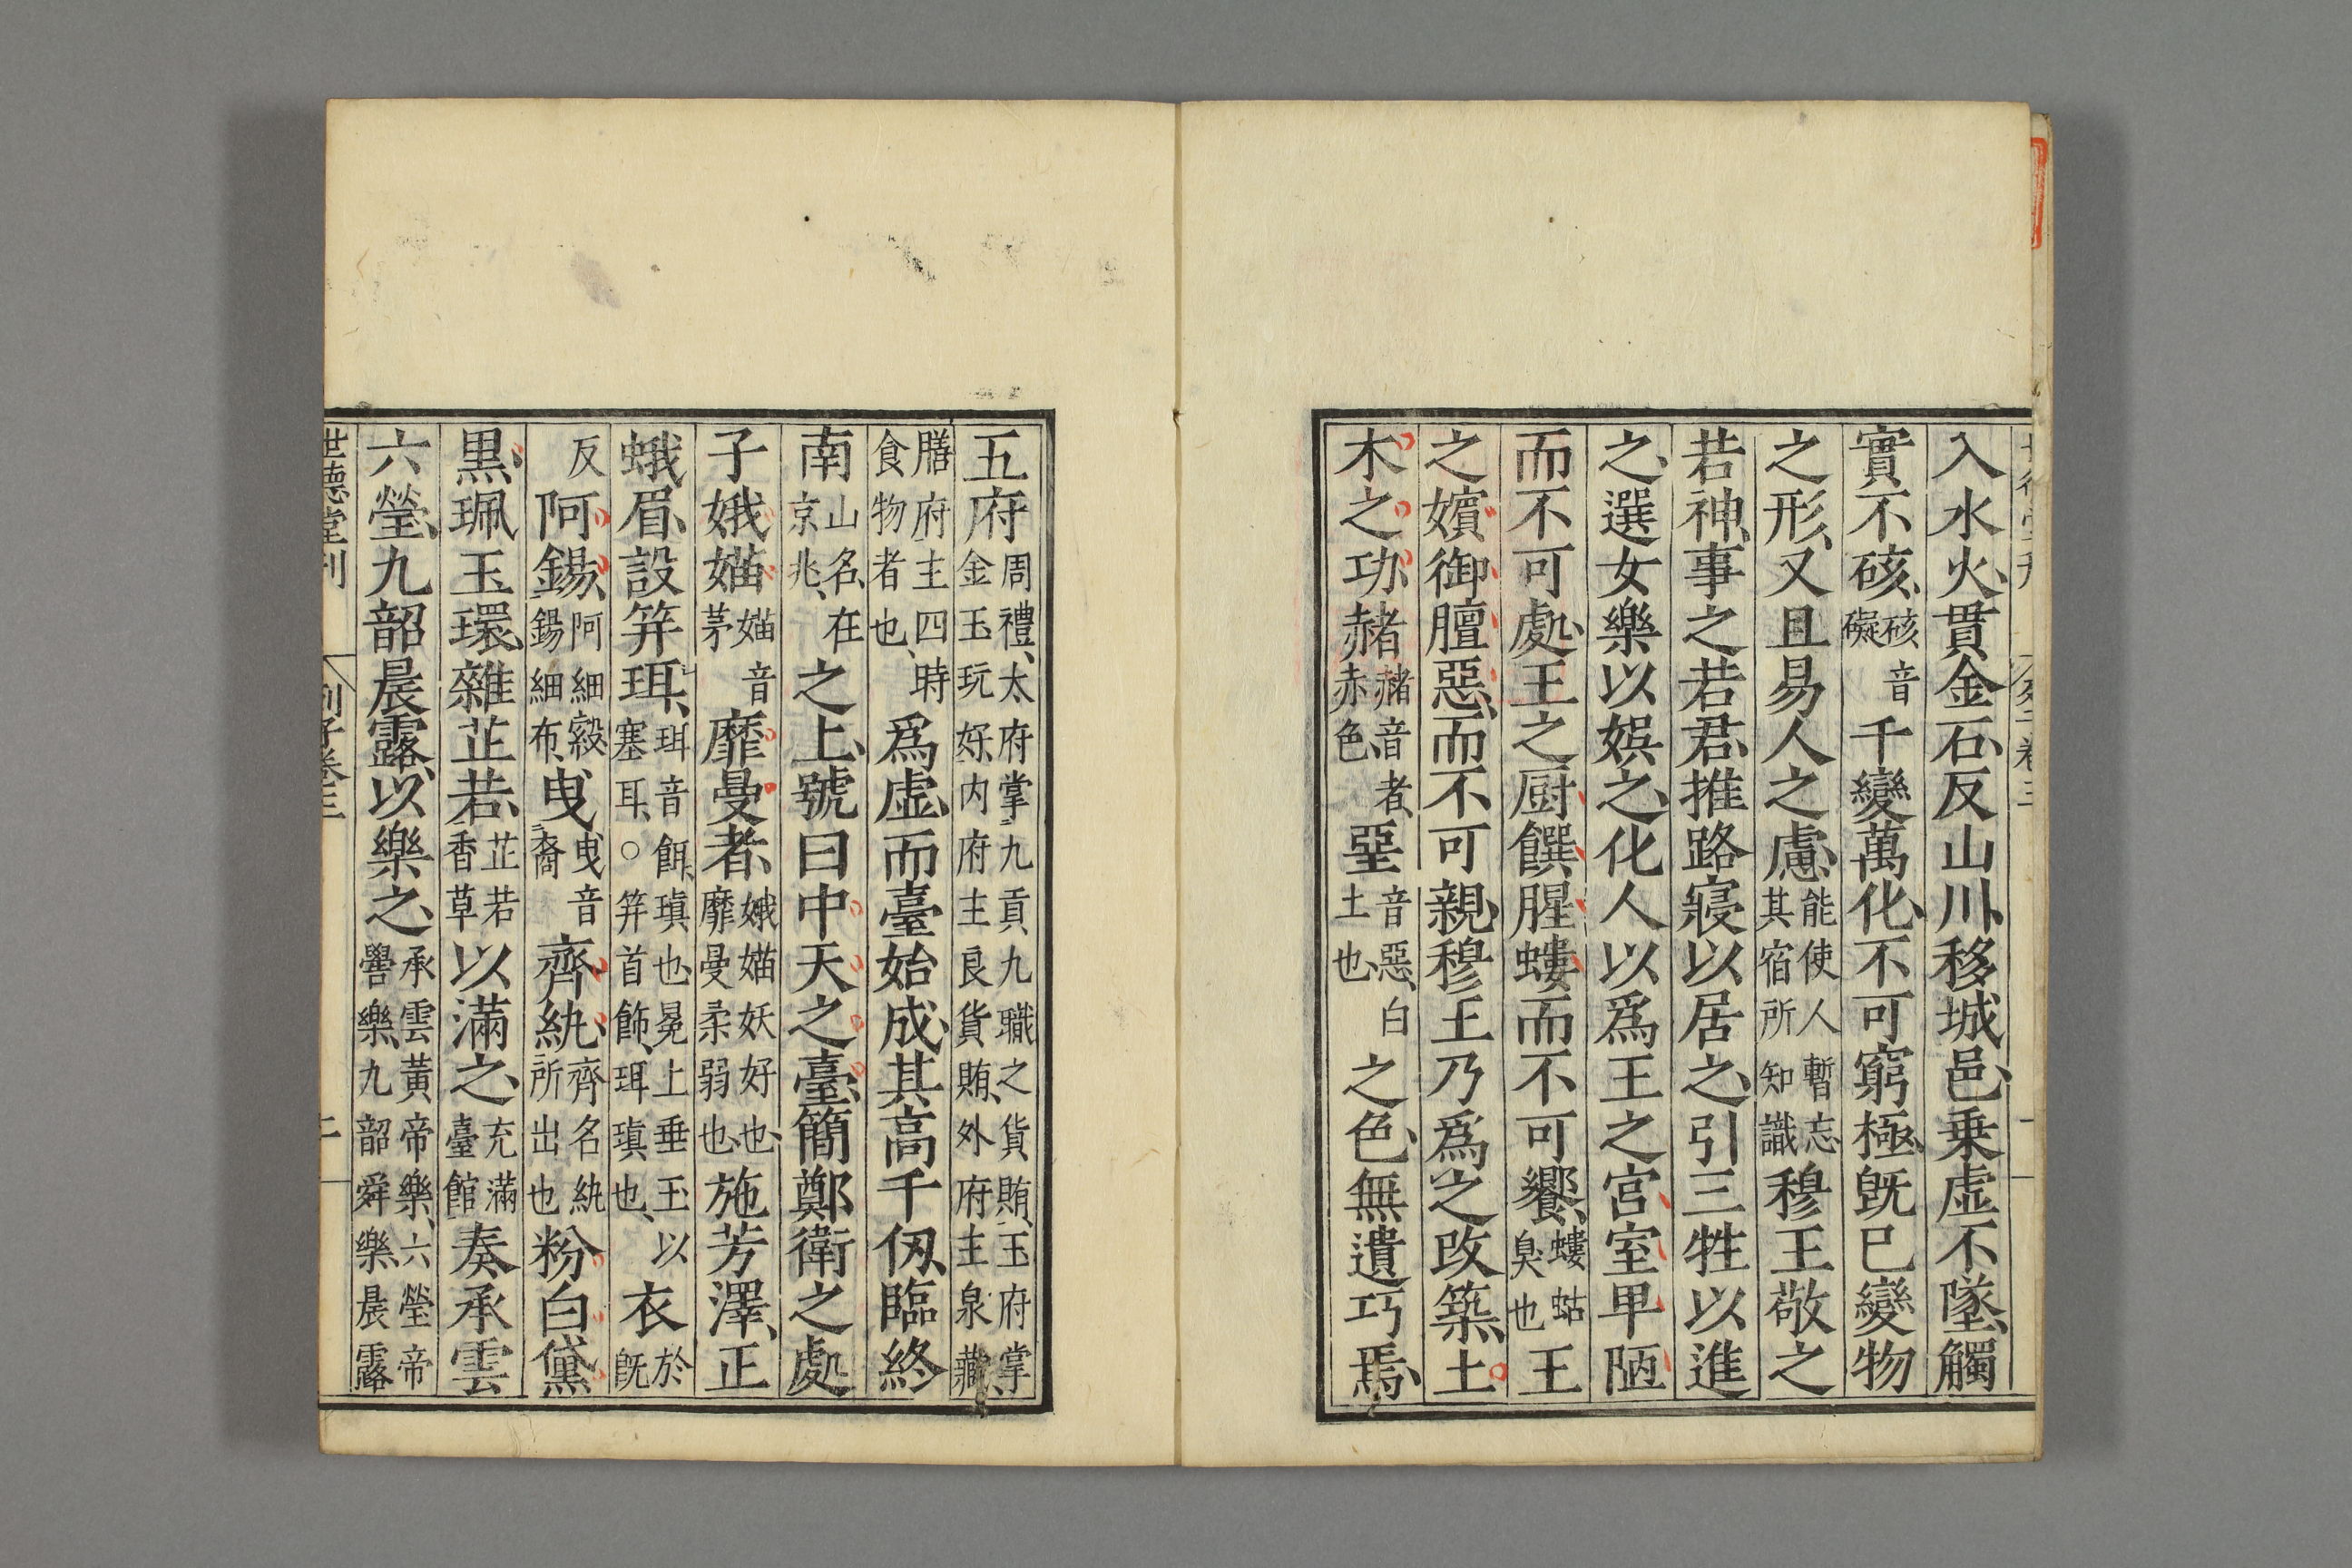 入水火、貫金石、反山川、移城邑、乗虛不墜、觸
實不硋、硋音礙千變萬化、不可窮極、旣已變物
之形、又且易人之慮、能使人暫忘其宿所知識穆王敬之
若神、事之若君、推路寢以居之、引三牲以進
之、選女樂以娛之、化人以爲王之宮室卑陋
而不可處、王之厨饌腥螻而不可饗、螻蛄臭也王
之嬪御膻惡、而不可親、穆王乃爲之改築、土
木之功、赭赭音者、赤色、堊音惡、白土也、之色、無遺巧焉、
五府周禮、太府掌九貢九職之貨賄、玉府掌金玉玩好、内府主良貨賄、外府主泉藏、
膳府主四時食物者也、爲虛、而臺始成、其高千仞、臨終
南山名、在京兆、之上、號曰中天之臺、簡鄭衛之處
子娥媌媌音茅靡曼者、娥媌妖好也、靡曼柔弱也、施芳澤、正
蛾眉、設笄珥、珥音餌、瑱也、冕上垂玉以塞耳、○笄首飾、珥瑱也、衣於旣
反阿錫、阿細縠錫細布、曳、曳音裔齊紈、齊名紈所出也粉白黛
黑、珮玉環、雜芷若、芷若香草以滿之、充滿臺館奏承雲
六瑩、九韶晨露、以樂之、承雲黃帝樂、六瑩帝嚳樂、九韶舜樂、晨露
世德堂刊　列子卷三　二